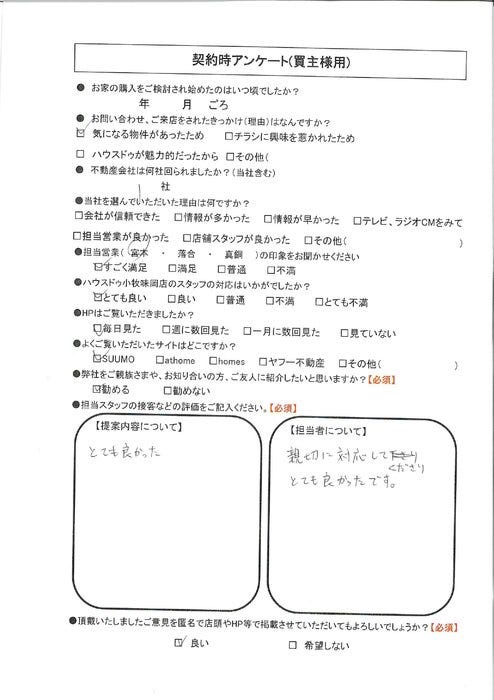 契約時アンケート(買主様用)
● お家の購入をご検討され始めたのはいつ頃でしたか?
年 月 ごろ
● お問い合わせ、ご来店をされたきっかけ(理由)はなんですか?
☑ 気になる物件があったため □チラシに興味を惹かれたため
□ ハウスドゥが魅力的だったから □その他(
● 不動産会社は何社回られましたか?(当社含む)
1 社
●当社を選んでいただいた理由は何ですか?
□会社が信頼できた □情報が多かった □情報が早かった □テレビ、ラジオCMをみて
□担当営業が良かった □店舗スタッフが良かった □その他( )
●担当営業( 宮木 ・ 落合 ・ 真銅 )の印象をお聞かせください
☑すごく満足 □満足 □普通 □不満
●ハウスドゥ小牧味岡店のスタッフの対応はいかがでしたか?
☑とても良い □良い □普通 □不満 □とても不満
●HPはご覧いただきましたか?
☑毎日見た □週に数回見た □一月に数回見た □見ていない
●よくご覧いただいたサイトはどこですか?
☑SUUMO □athome □homes □ヤフー不動産 □その他( )
●弊社をご親族さまや、お知り合いの方、ご友人に紹介したいと思いますか?【必須】
☑勧める □勧めない
●担当スタッフの接客などの評価をご記入ください。【必須】
【提案内容について】
とても良かった
【担当者について】
親切に対応して
くださり
とても良かったです。
●頂戴いたしましたご意見を匿名で店頭やHP等で掲載させていただいてもよろしいでしょうか?【必須】
☑ 良い □ 希望しない